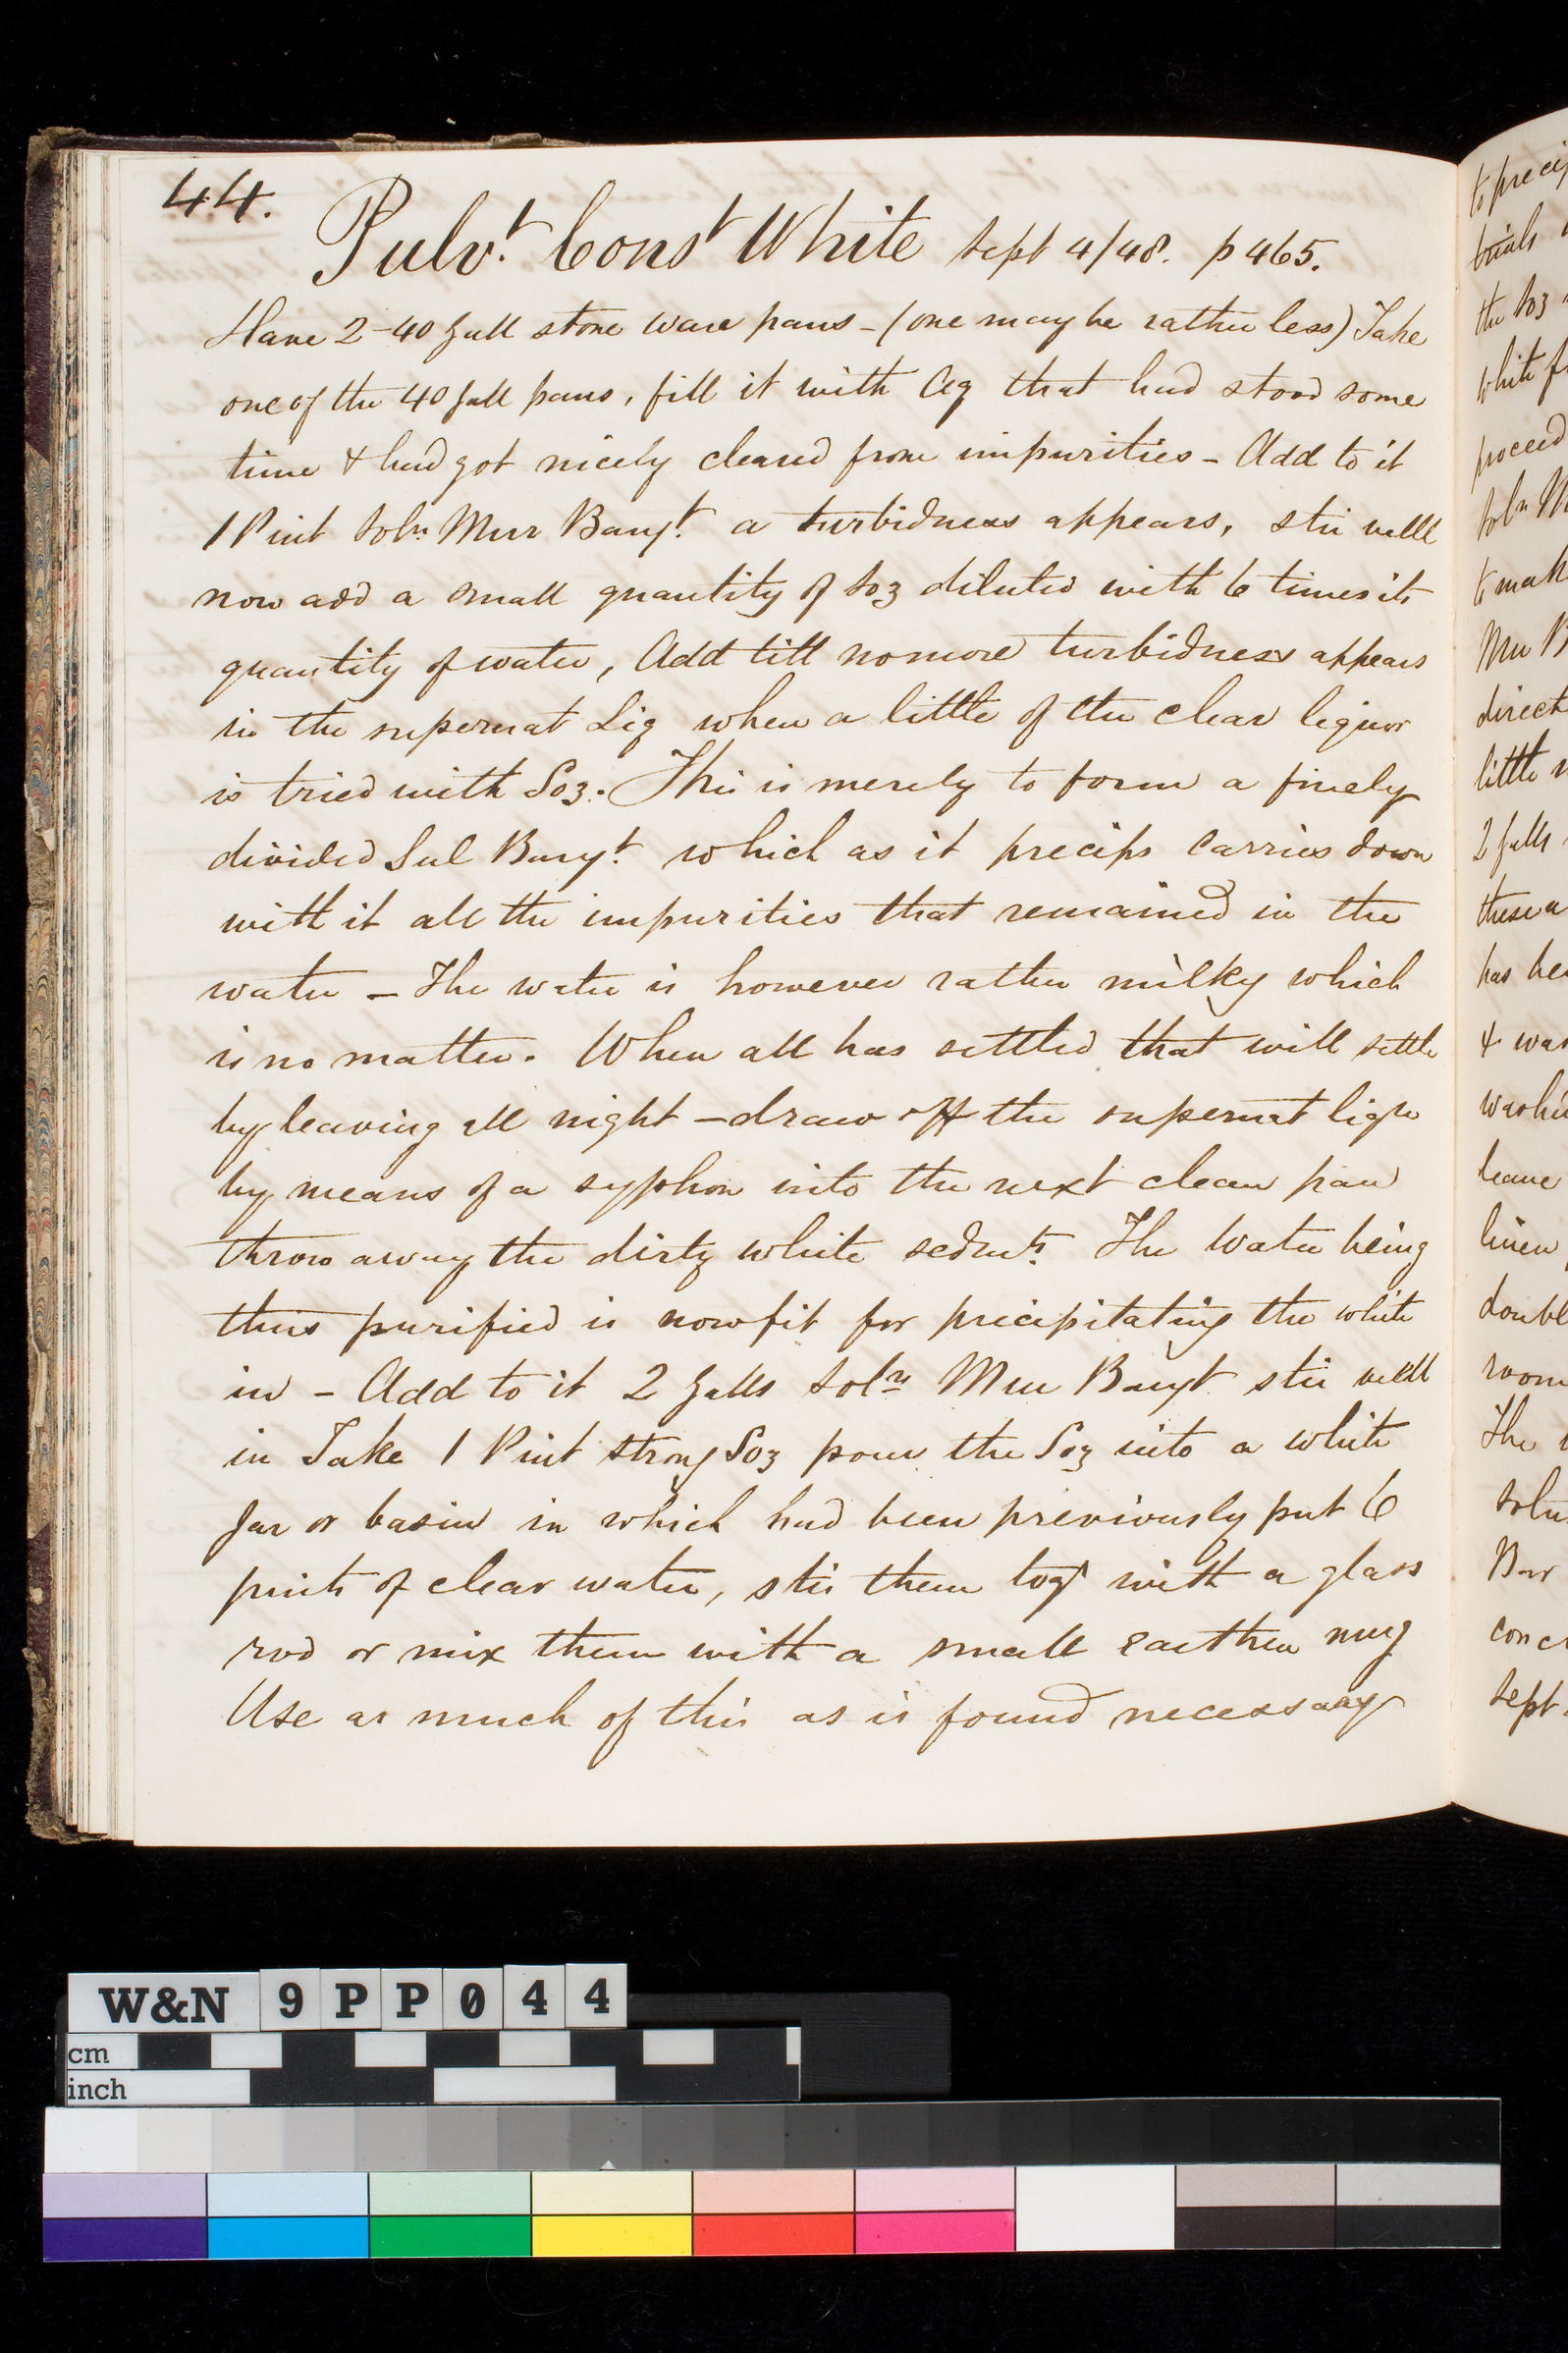 44.
Pulvt. Const White Sept 4/48. p 465.
Have 2-40 gall stone ware pans - (one may be rather less) Take
one of the 40 gall pans, fill it with Aq that had stood some
time & had got nicely cleared from impurities - Add to it
1 Pint Soln Mur Baryt. a turbidness appears, stir well
now add a small quantity of So3 diluted with 6 times its
quantity of water, Add till no more turbidness appears
in the supernat Liq when a little of the clear liquor
is tried with So3. This is merely to form a finely
divided Sul Baryt. which as it precips carries down
with it all the impurities that remained in the
water - The water is however rather milky which
is no matter. When all has settled that will settle
by leaving all night - draw off the supernat liqr
by means of a syphon into the next clean pan
throw away the dirty white sedmts. The Water being
thus purified is now fit for precipitating the white
in - Add to it 2 galls Soln Mur Baryt stir well
in Take 1 Pint strong So3 pour the So3 into a white
Jar or basin in which had been previously put 6
pints of clear water, stir them togr with a glass
rod or mix them with a small earthen mug
Use as much of this as is found necessary
to precip
trials
the So3
white
proceed
Soln M
to mak
Mur B
direct
little
2 galls
these a
has be
& was
washi
leave
linen
doubl
room
The
solu
Bar
conc
Sept
W&N 9PP044
cm
inch